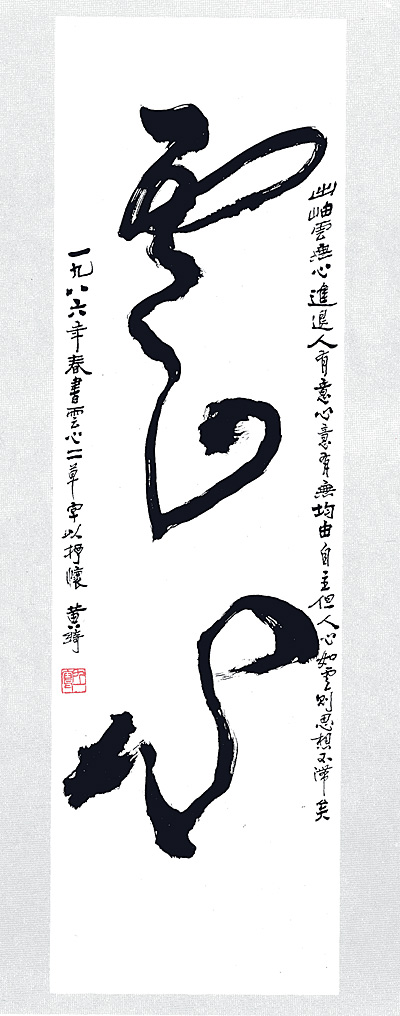 出岫雲無心進退人有意心意有無均由自主但人心如雲則思想不滯矣
雲心
一九八六年春書雲心二草字以抒懷 黃綺